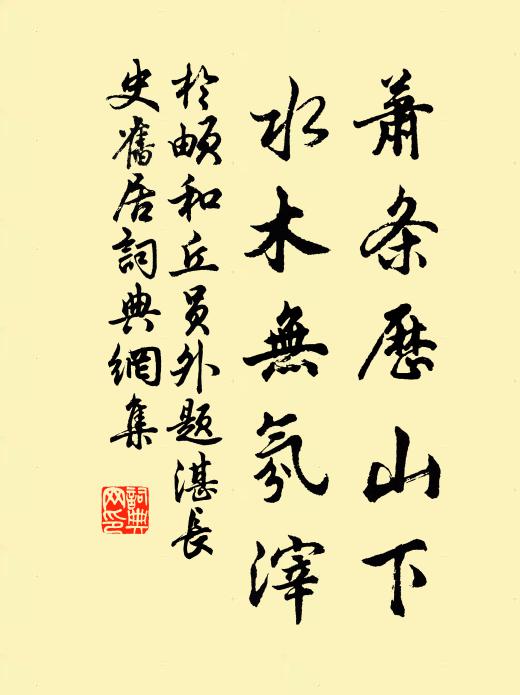 蕭条歷山下
水木無氛滓
於頔和丘員外題湛長
史舊居詞典網集
詞典
网印